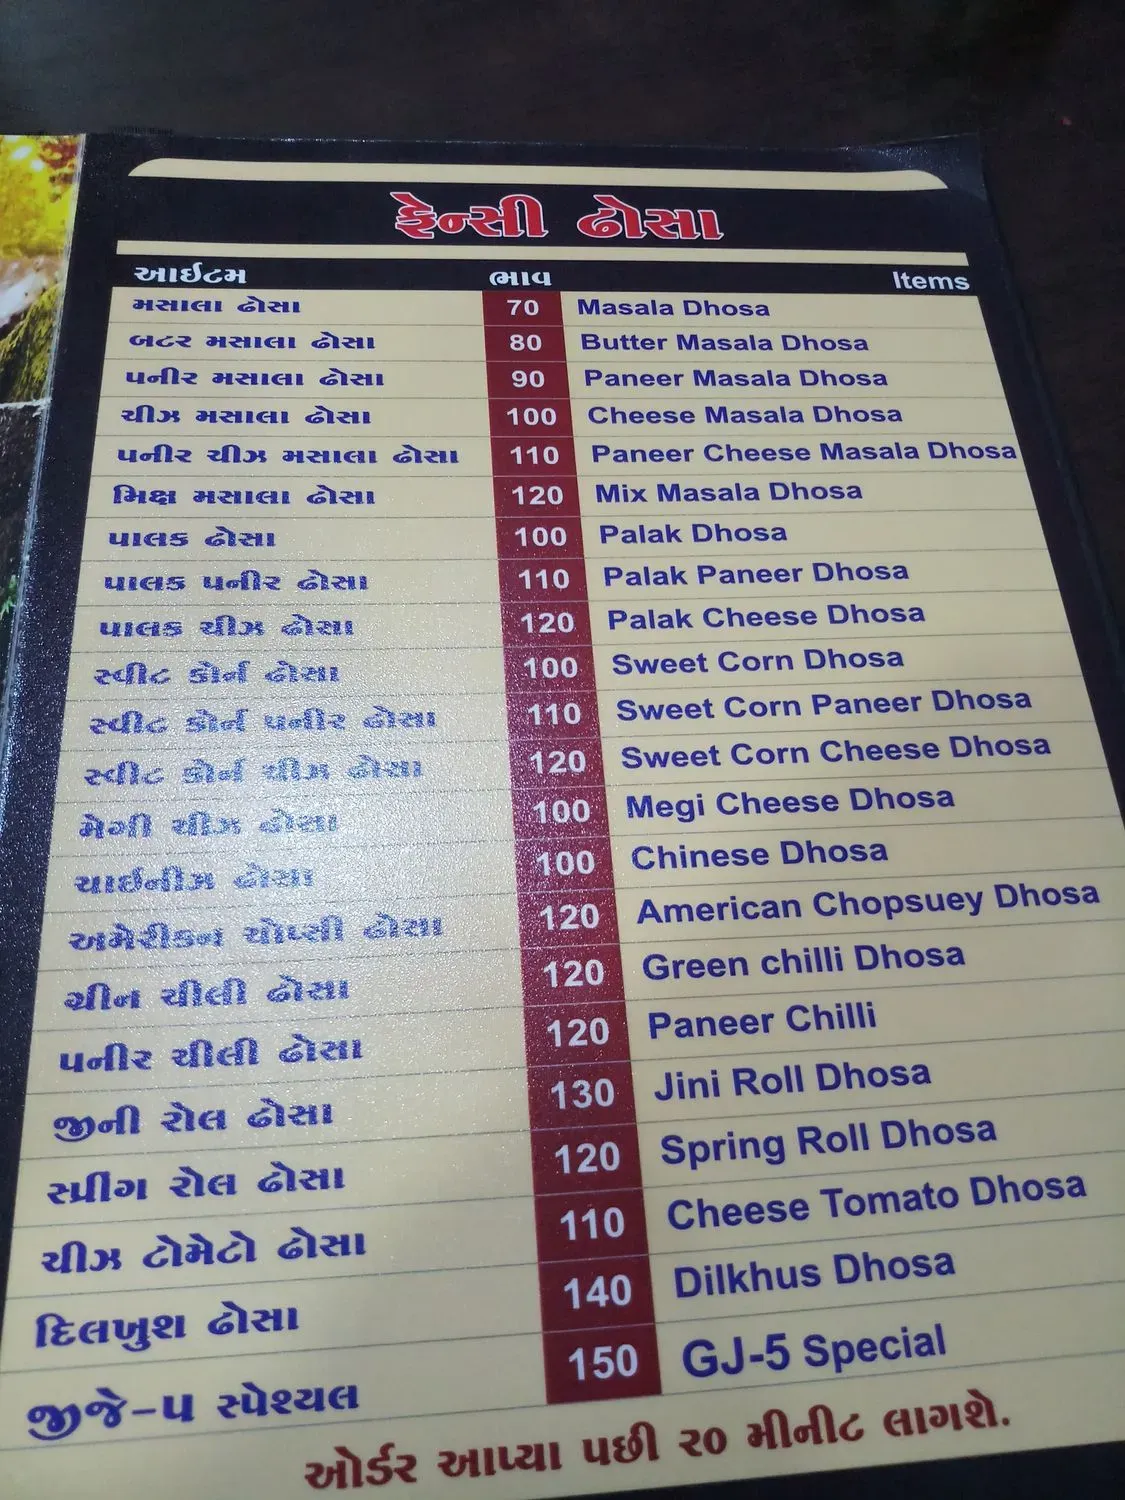 ફેન્સી ઢોસા
આઈટમ ભાવ Items
મસાલા ઢોસા 70 Masala Dhosa
બટર મસાલા ઢોસા 80 Butter Masala Dhosa
પનીર મસાલા ઢોસા 90 Paneer Masala Dhosa
ચીઝ મસાલા ઢોસા 100 Cheese Masala Dhosa
પનીર ચીઝ મસાલા ઢોસા 110 Paneer Cheese Masala Dhosa
મિક્ષ મસાલા ઢોસા 120 Mix Masala Dhosa
પાલક ઢોસા 100 Palak Dhosa
પાલક પનીર ઢોસા 110 Palak Paneer Dhosa
પાલક ચીઝ ઢોસા 120 Palak Cheese Dhosa
સ્વીટ કોર્ન ઢોસા 100 Sweet Corn Dhosa
સ્વીટ કોર્ન પનીર ઢોસા 110 Sweet Corn Paneer Dhosa
સ્વીટ કોર્ન ચીઝ ઢોસા 120 Sweet Corn Cheese Dhosa
મેગી ચીઝ ઢોસા 100 Megi Cheese Dhosa
ચાઈનીઝ ઢોસા 100 Chinese Dhosa
અમેરીકન ચોપ્સી ઢોસા 120 American Chopsuey Dhosa
ગ્રીન ચીલી ઢોસા 120 Green chilli Dhosa
પનીર ચીલી ઢોસા 120 Paneer Chilli
જીની રોલ ઢોસા 130 Jini Roll Dhosa
સ્પ્રીંગ રોલ ઢોસા 120 Spring Roll Dhosa
ચીઝ ટોમેટો ઢોસા 110 Cheese Tomato Dhosa
દિલખુશ ઢોસા 140 Dilkhus Dhosa
જીજે-૫ સ્પેશ્યલ 150 GJ-5 Special
ઓર્ડર આપ્યા પછી ૨૦ મીનીટ લાગશે.